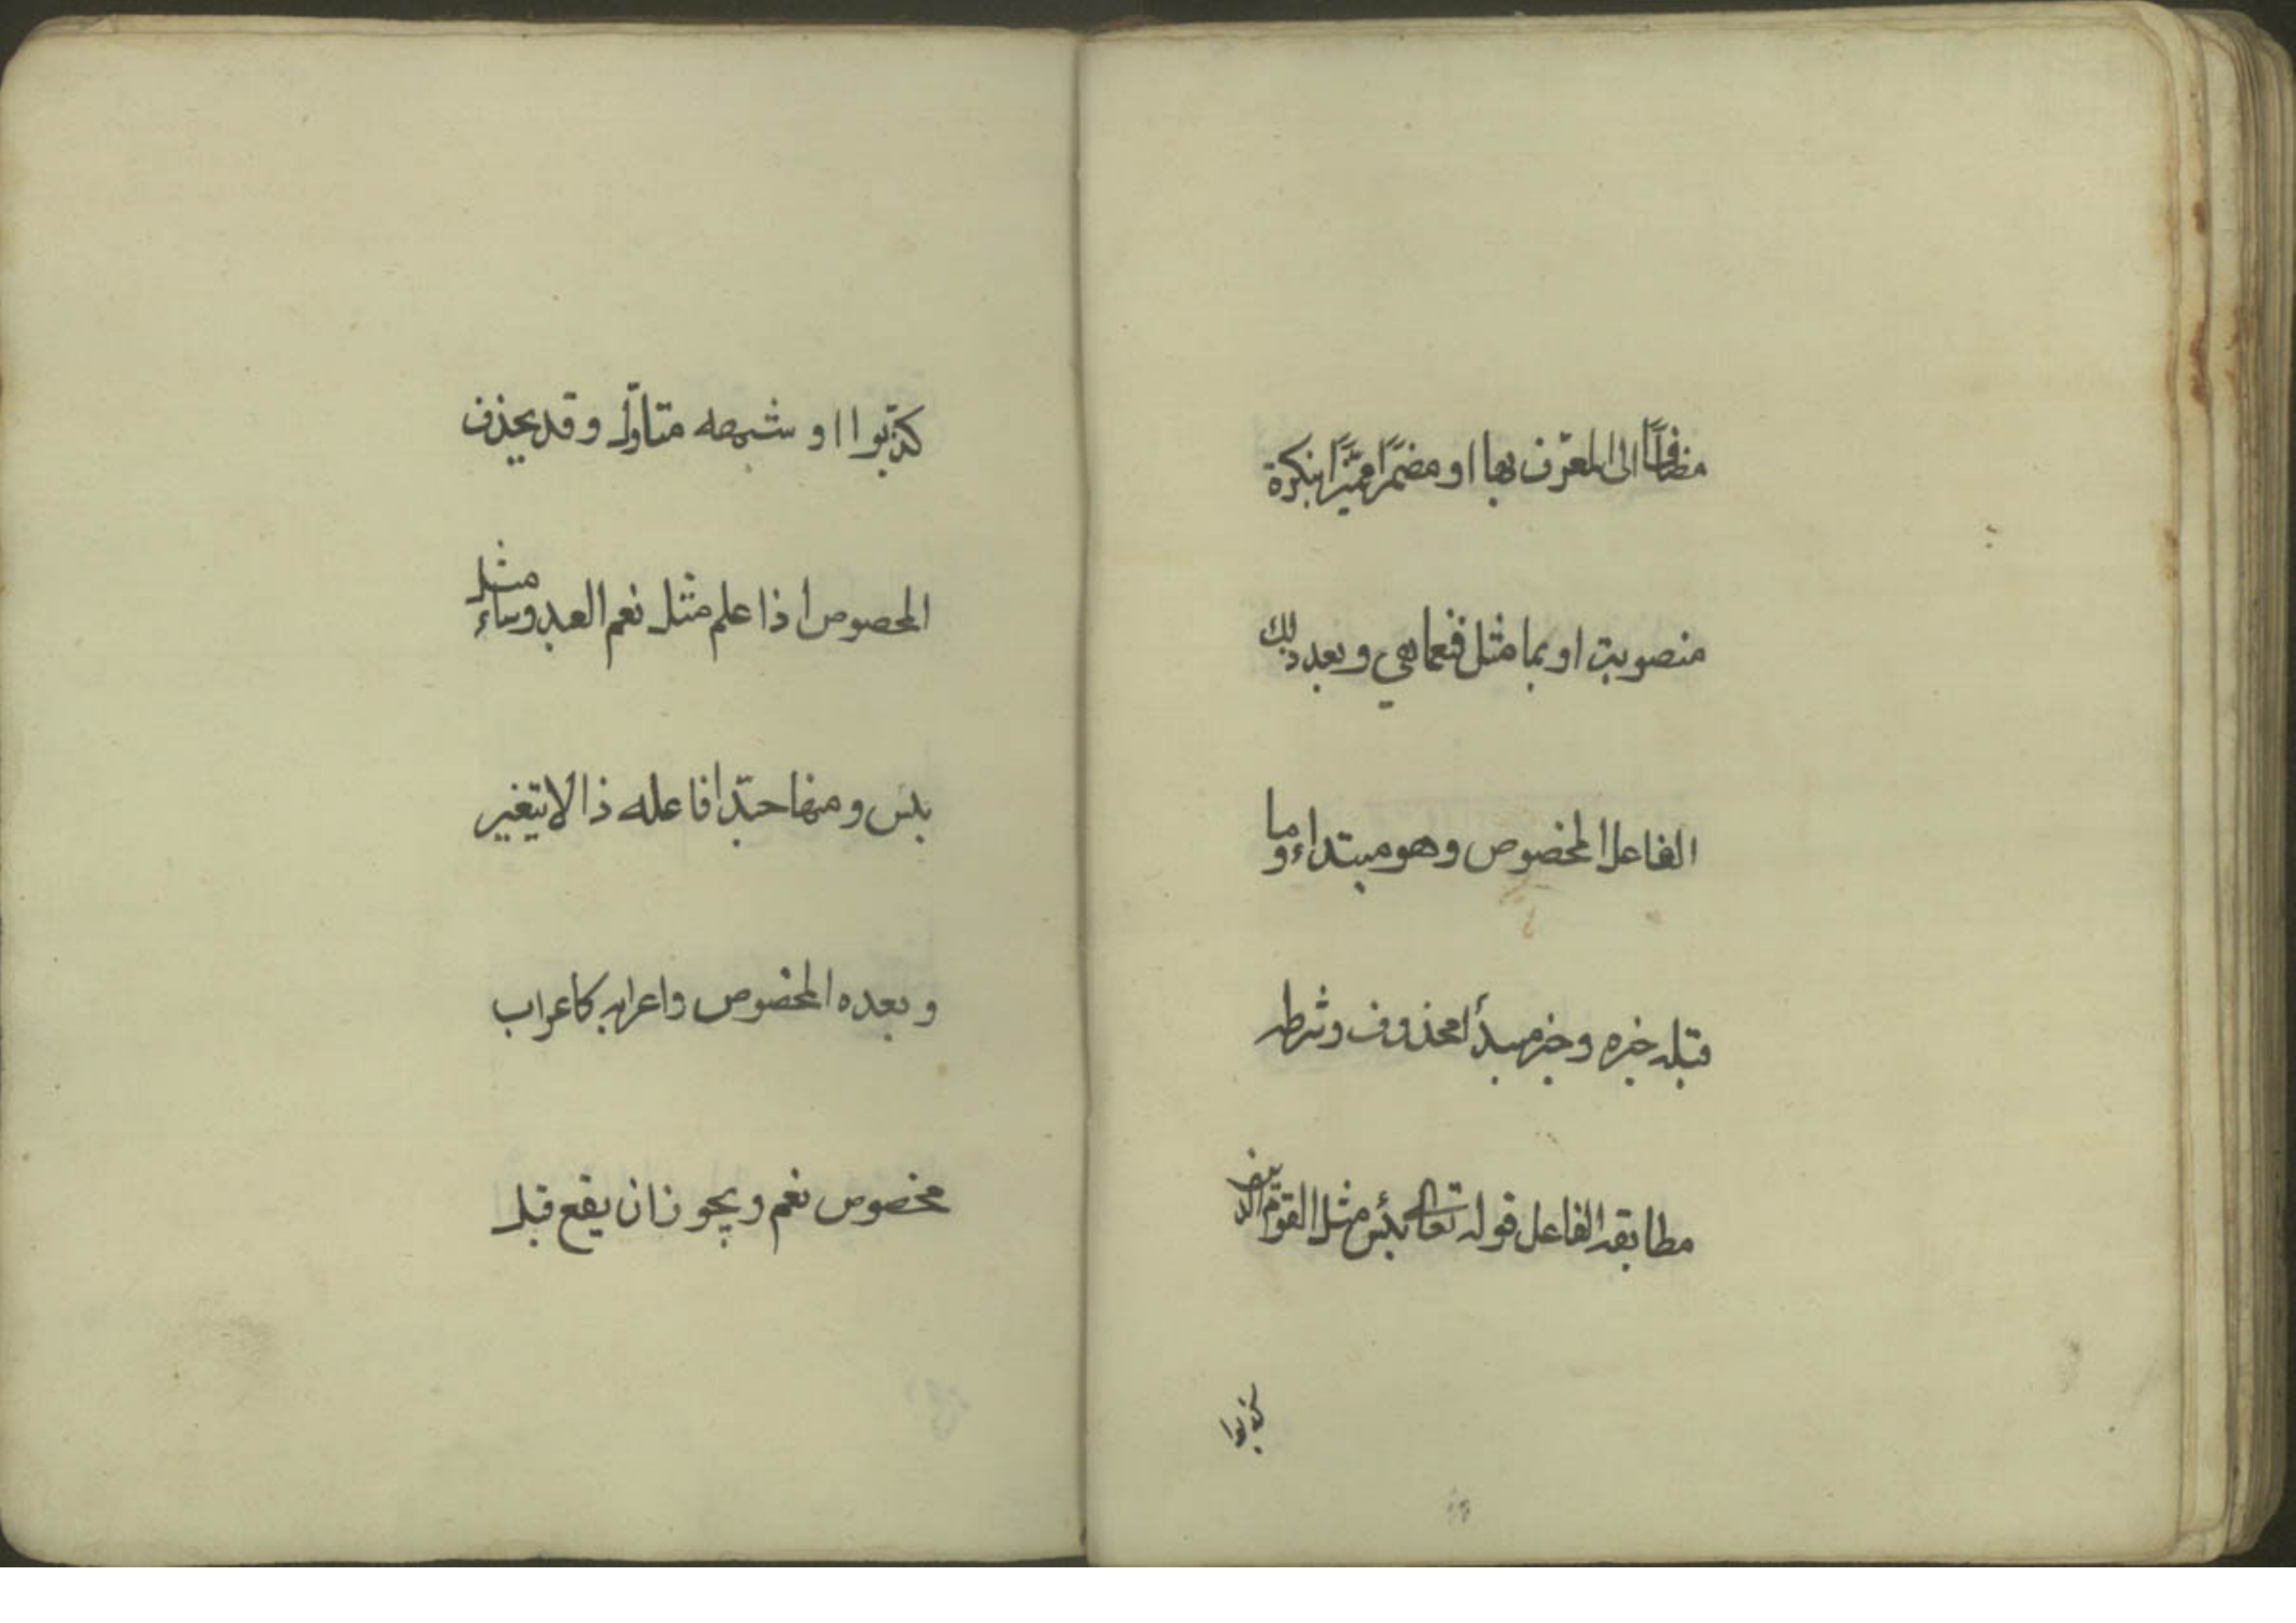 مضافًا الى المعرّف بها او مضمرًا مميّزًا بنكرة
منصوبة او بما مثل فنعما هي وبعد ذلك
الفاعل المخصوص وهو مبتداء وما
قبله خبره وخبر مبتدأ محذوف وشرطه
مطابقة الفاعل قوله تعالى بئس مثل القوم الذين
كذبوا
كذّبوا ا او شبهه متاوّل وقد يحذف
المحصوص اذا علم مثل نعم العبد وساء مثل
بئس ومنها حبّذا فاعله ذا لا يتغير
وبعده المخصوص واعرابه كاعراب
مخصوص نعم ويجوز ان يقع قبل